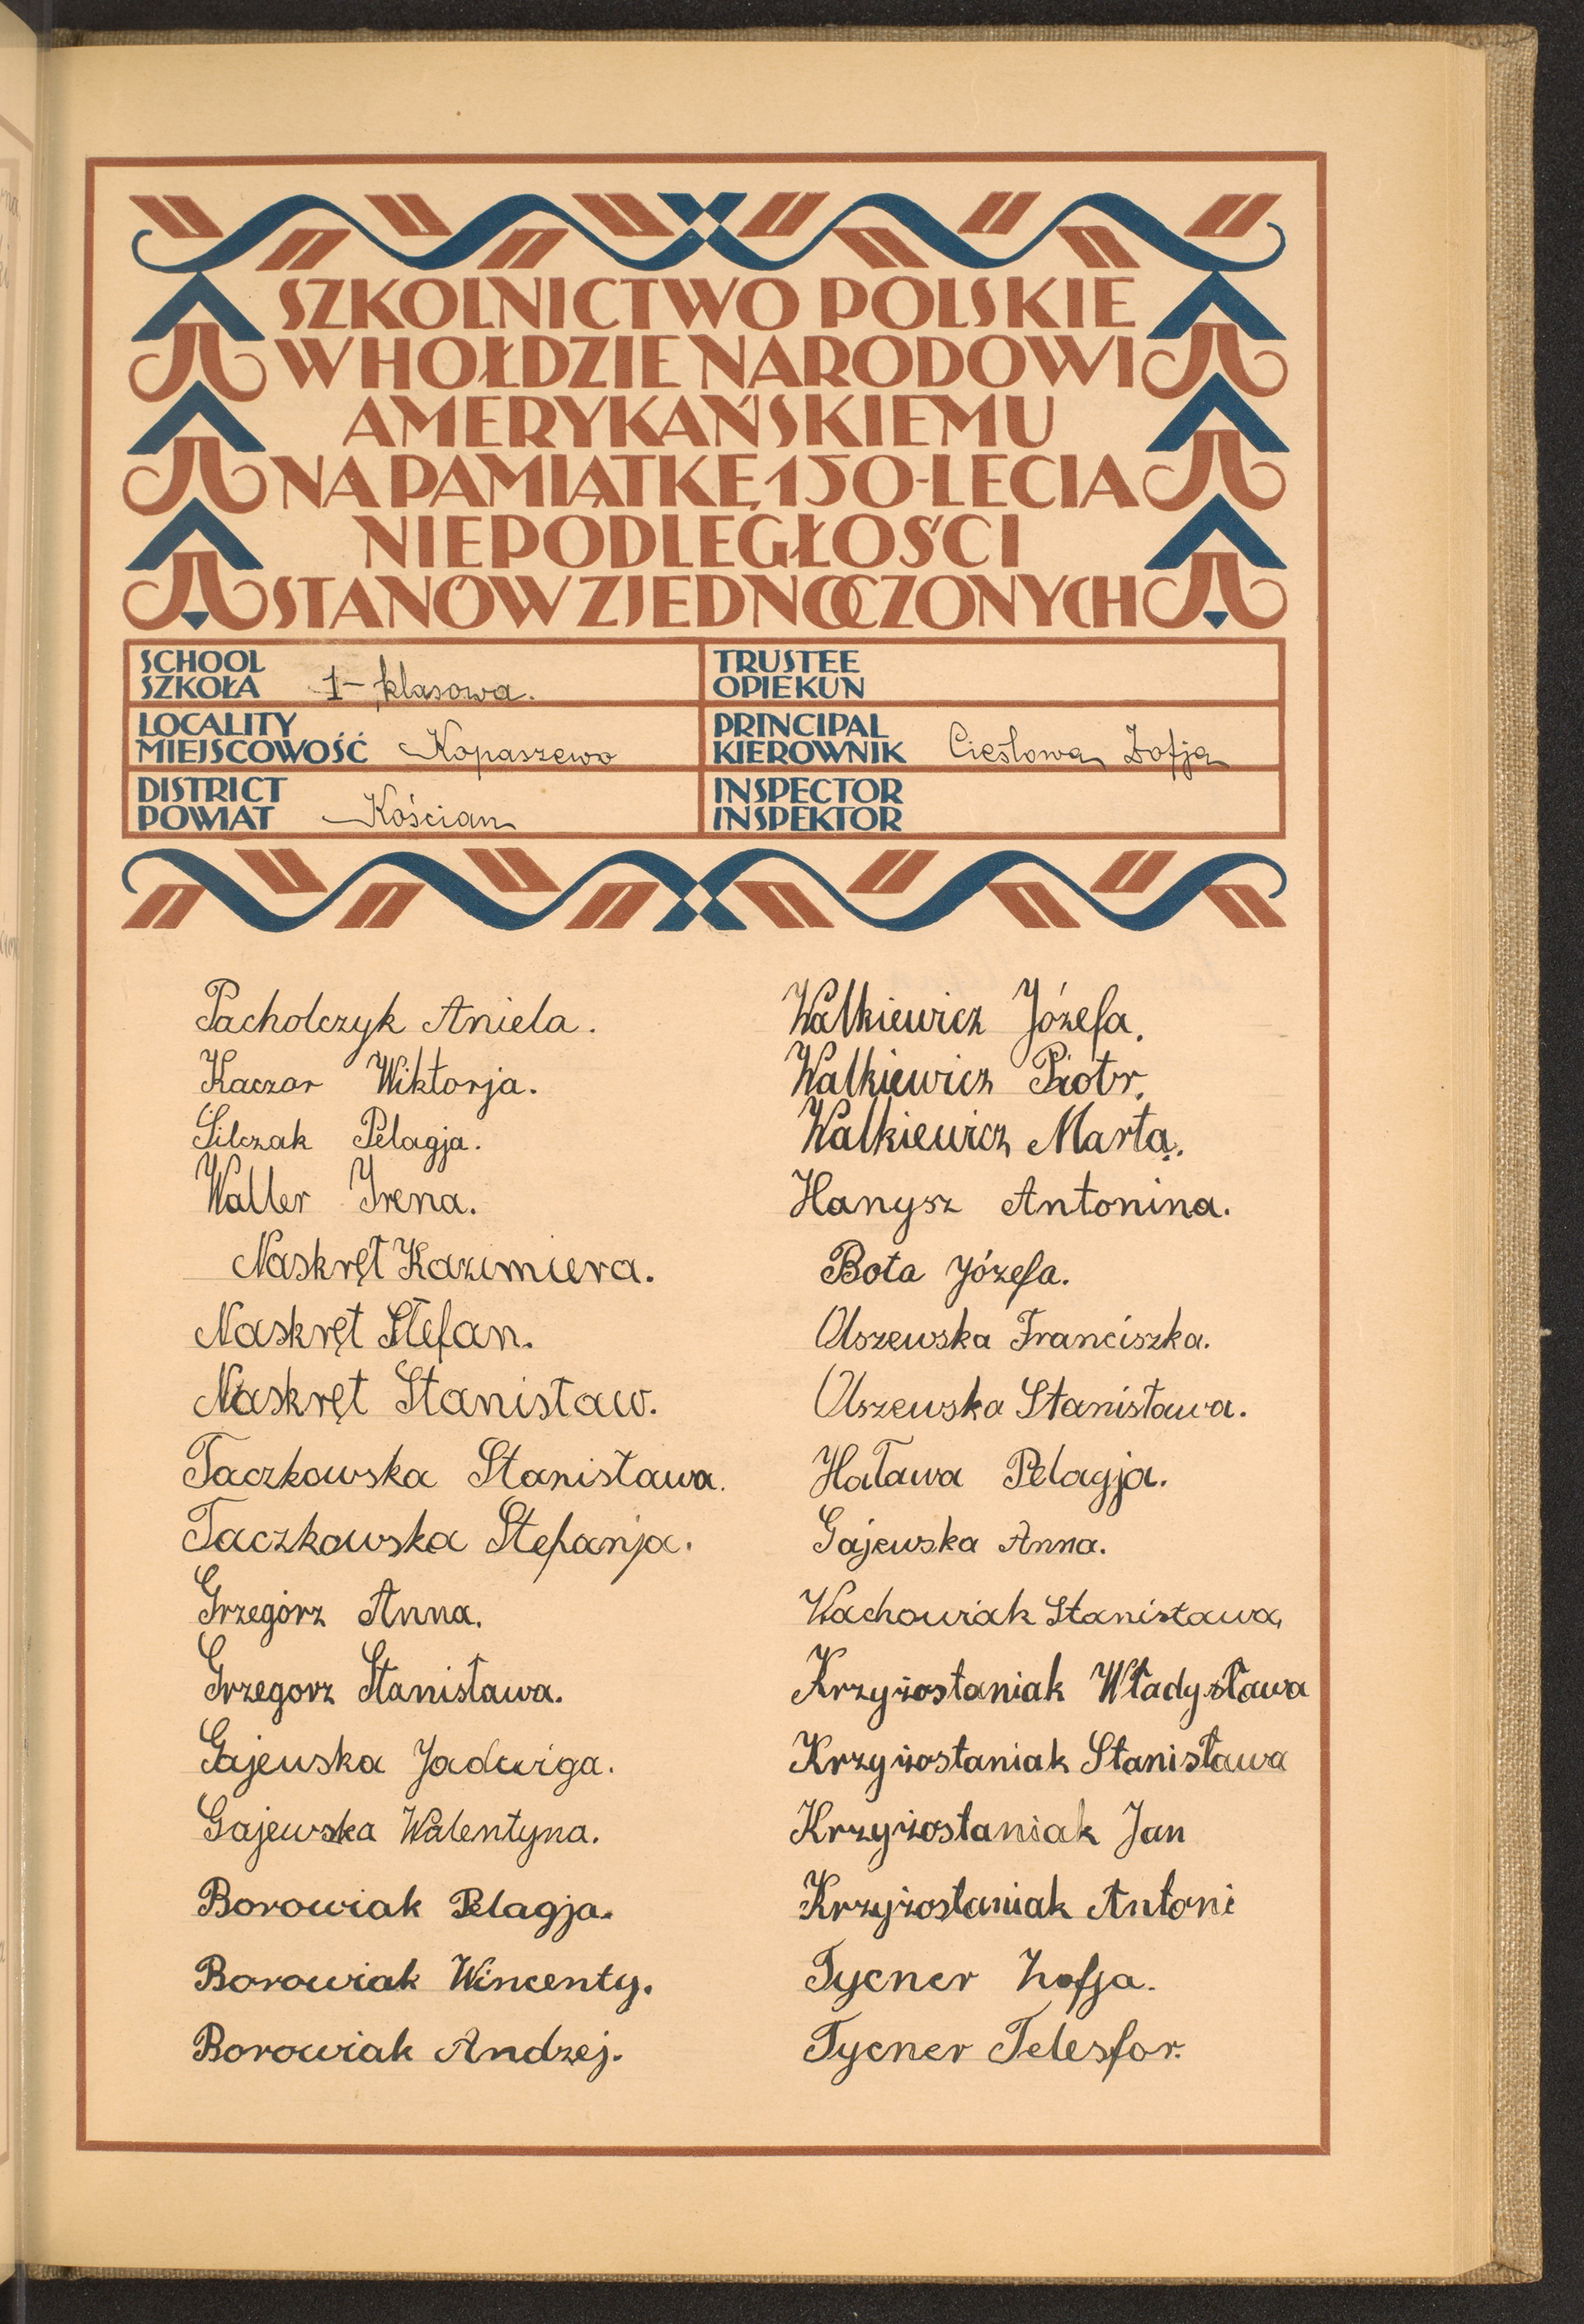 SZKOLNICTWO POLSKIE
W HOŁDZIE NARODOWI
AMERYKAŃSKIEMU
NA PAMIĄTKĘ 150-LECIA
NIEPODLEGŁOŚCI
STANÓW ZJEDNOCZONYCH
SCHOOL
SZKOŁA 1-klasowa.
TRUSTEE
OPIEKUN
LOCALITY
MIEJSCOWOŚĆ Kopaszewo
PRINCIPAL
KIEROWNIK Cieślowa Zofja
DISTRICT
POWIAT Kościan
INSPECTOR
INSPEKTOR
Pacholczyk Aniela.
Kaczor Wiktorja.
Silczak Pelagja.
Waller Irena.
Naskręt Kazimiera.
Naskręt Stefan.
Naskręt Stanisław.
Taczkowska Stanisława.
Taczkowska Stefanja.
Grzegorz Anna.
Grzegorz Stanisława.
Gajewska Jadwiga.
Gajewska Walentyna.
Borowiak Pelagja.
Borowiak Wincenty.
Borowiak Andzej.
Walkiewicz Józefa.
Walkiewicz Piotr.
Walkiewicz Marta.
Hanysz Antonina.
Bota Józefa.
Olszewska Franciszka.
Olszewska Stanisława.
Haława Pelagja.
Gajewska Anna.
Wachowiak Stanisława,
Krzyżostaniak Władysława
Krzyżostaniak Stanisława
Krzyżostaniak Jan
Krzyżostaniak Antoni
Tycner Zofja.
Tycner Telesfor.